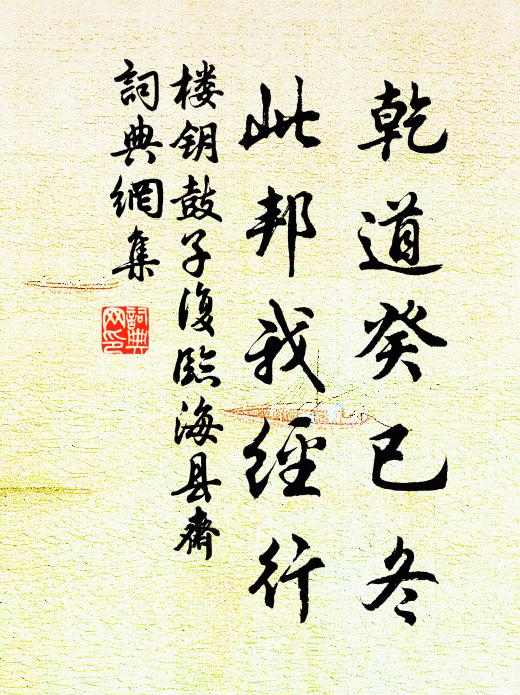 乾道癸巳冬
此邦我經行
楼钥鼓子復臨海县齋
詞典網集
詞典网印